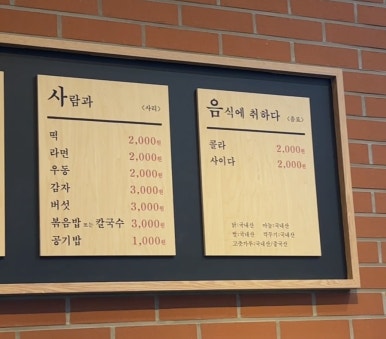 사람과 <사리>
떡 2,000원
라면 2,000원
우동 2,000원
감자 3,000원
버섯 3,000원
볶음밥 또는 칼국수 3,000원
공기밥 1,000원
음식에 취하다 <음료>
콜라 2,000원
사이다 2,000원
닭:국내산 마늘:국내산
쌀:국내산 깍두기:국내산
고춧가루:국내산/중국산